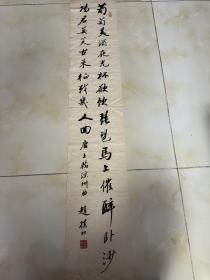 葡萄美酒夜光杯欲饮琵琶馬上催醉卧沙
場君莫笑古来征戰幾人回 唐王翰涼州曲 趙樸初